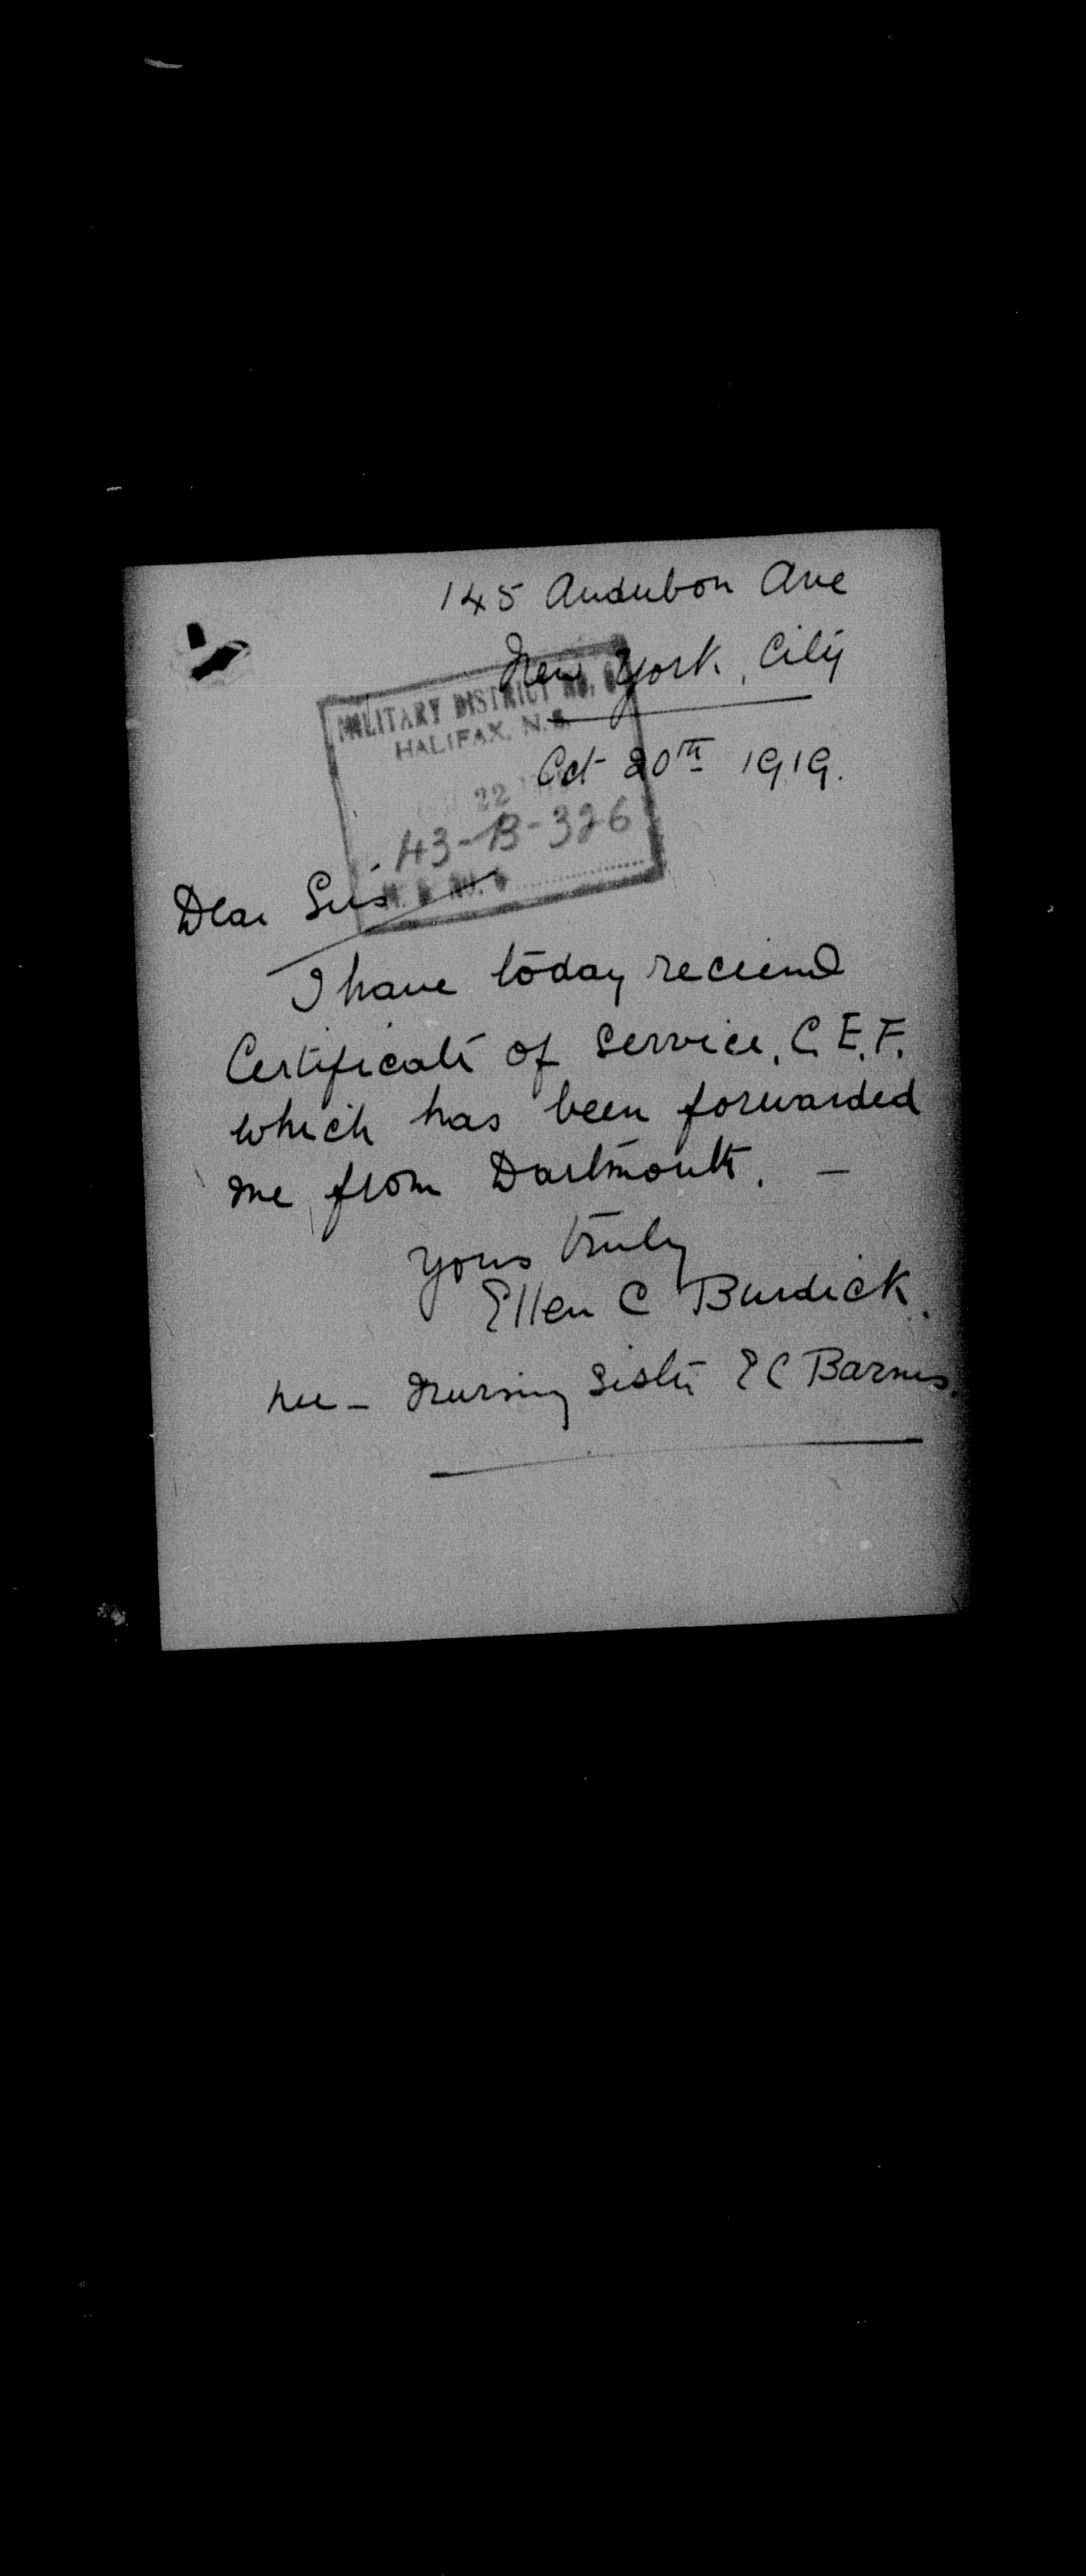 145 Audubon Ave
New York, City
MILITARY DISTRICT NO. 6
HALIFAX, N.S.
Oct 20th 1919.
22
43-B-326
M. D. NO. 6
Dear Sirs
I have today recieved
Certificate of Service, C.E.F.
which has been forwarded
me from Dartmouth. —
Yours truly
Ellen C Burdick.
nee - Nursing Sister E C Barnes.